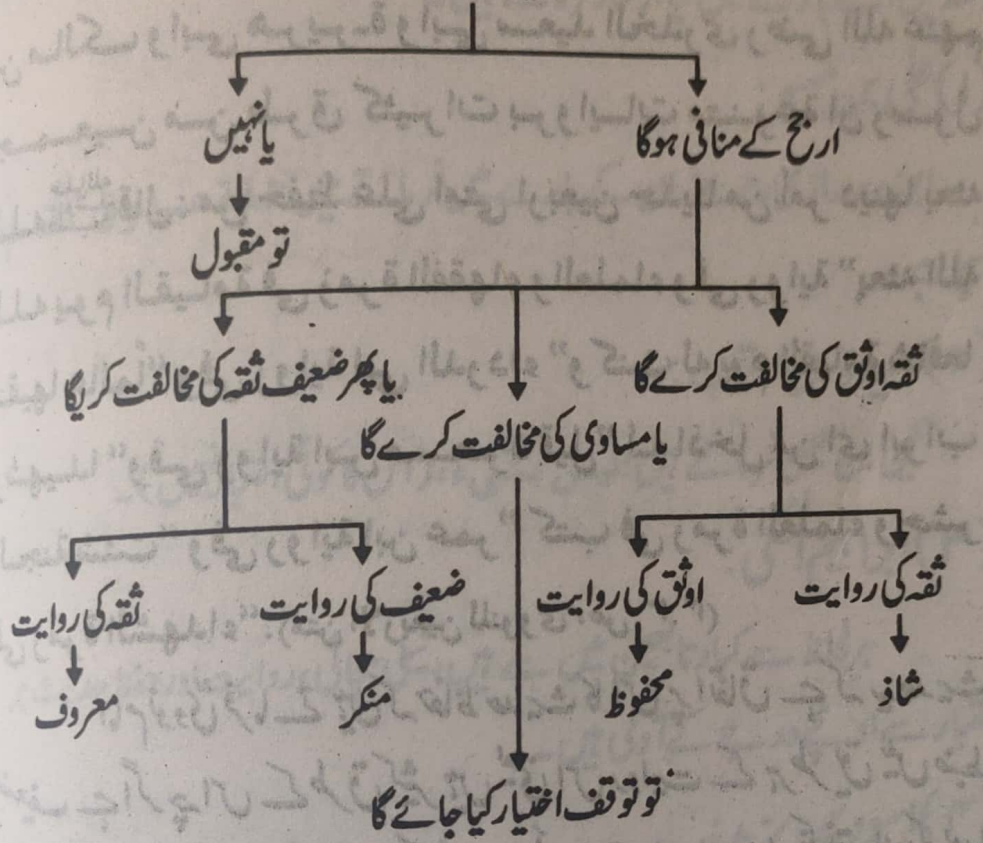 ارجح کے منافی ہوگا
یا نہیں
تو مقبول
ثقہ اوثق کی مخالفت کرے گا
یا مساوی کی مخالفت کرے گا
یا پھر ضعیف ثقہ کی مخالفت کریگا
ثقہ کی روایت
اوثق کی روایت
ضعیف کی روایت
ثقہ کی روایت
شاذ
محفوظ
منکر
معروف
تو توقف اختیار کیا جائے گا